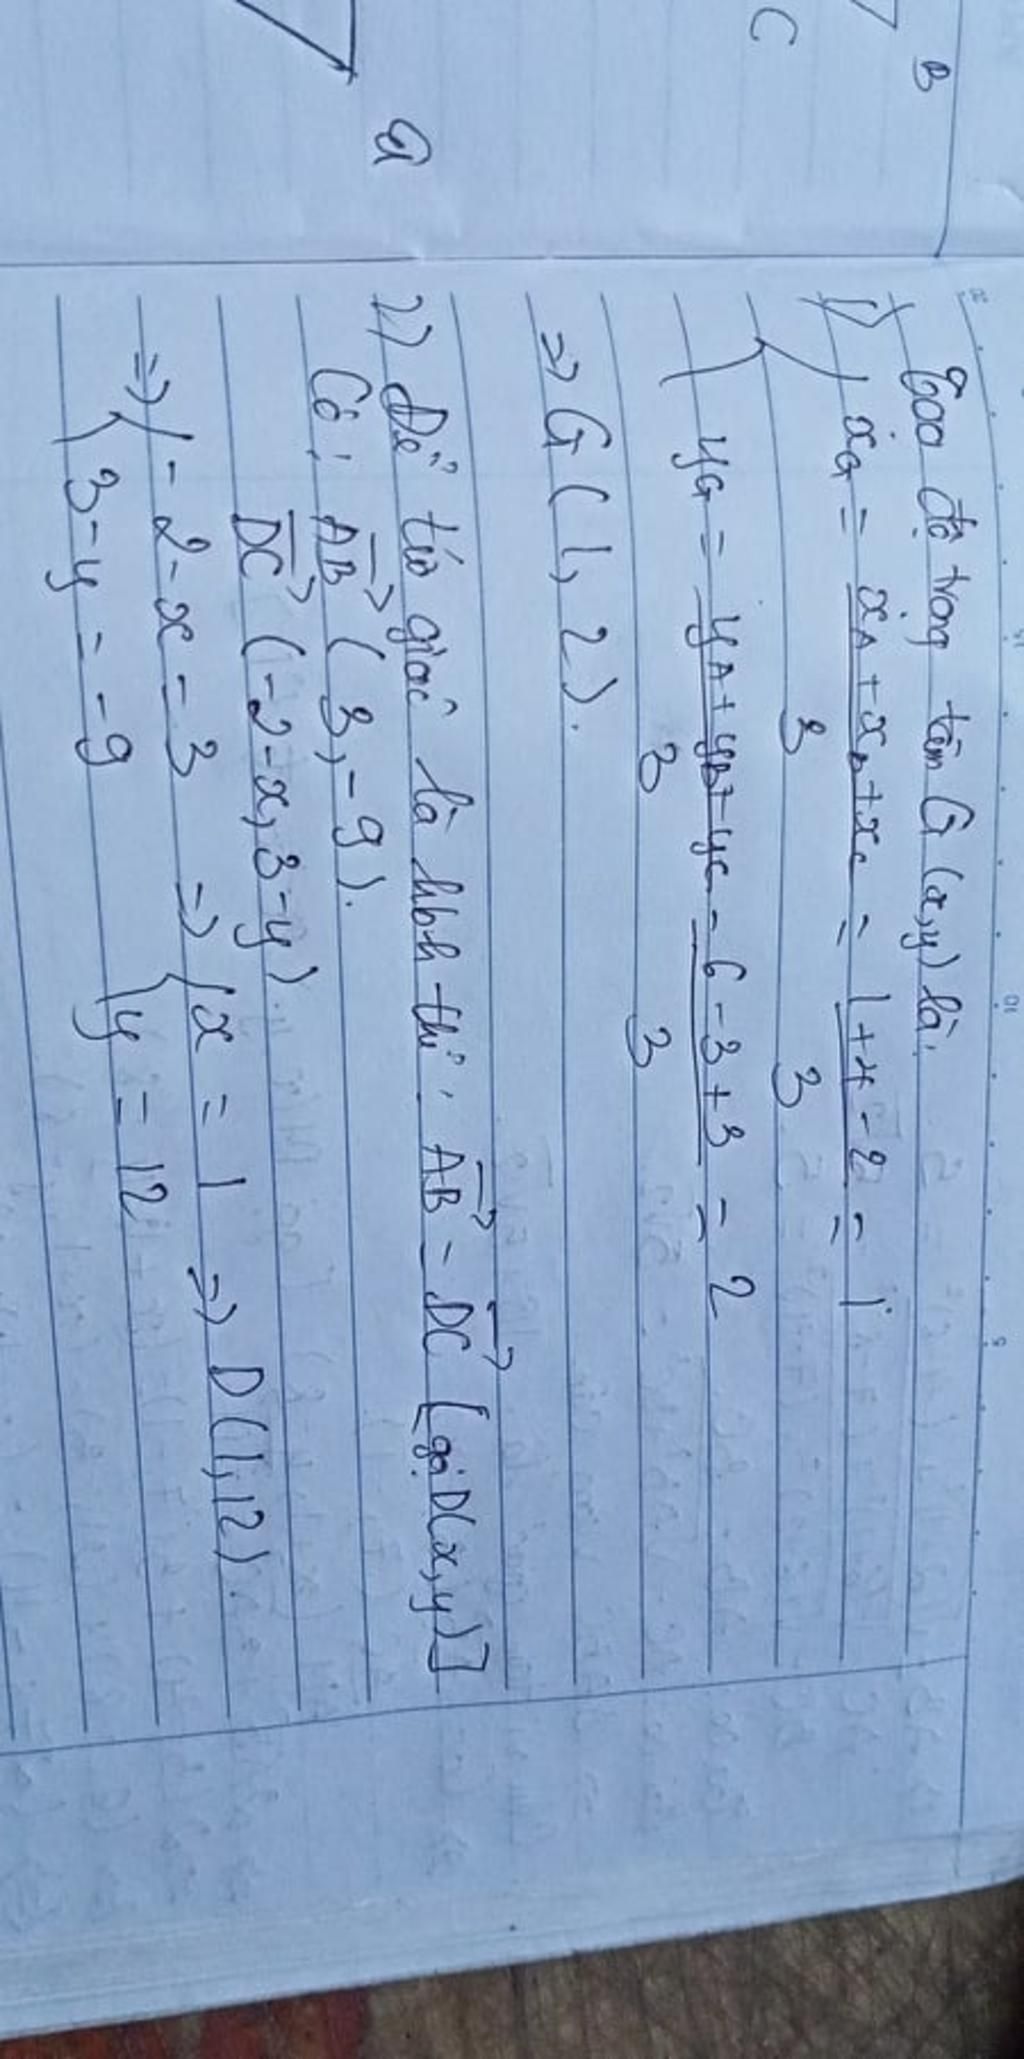 B
C
G
Toạ độ trọng tâm G (x,y) là:
1) xG = xA + xB + xC / 3 = 1 + 4 - 2 / 3 = 1
yG = yA + yB + yC / 3 = 6 - 3 + 3 / 3 = 2
=> G (1, 2).
2) Để tứ giác là hbh thì: AB = DC [gọi D(x,y)]
Có: AB (3, -9).
DC (-2-x, 3-y).
=> { -2-x = 3 => { x = 1 => D(1,12).
3-y = -9 y = 12